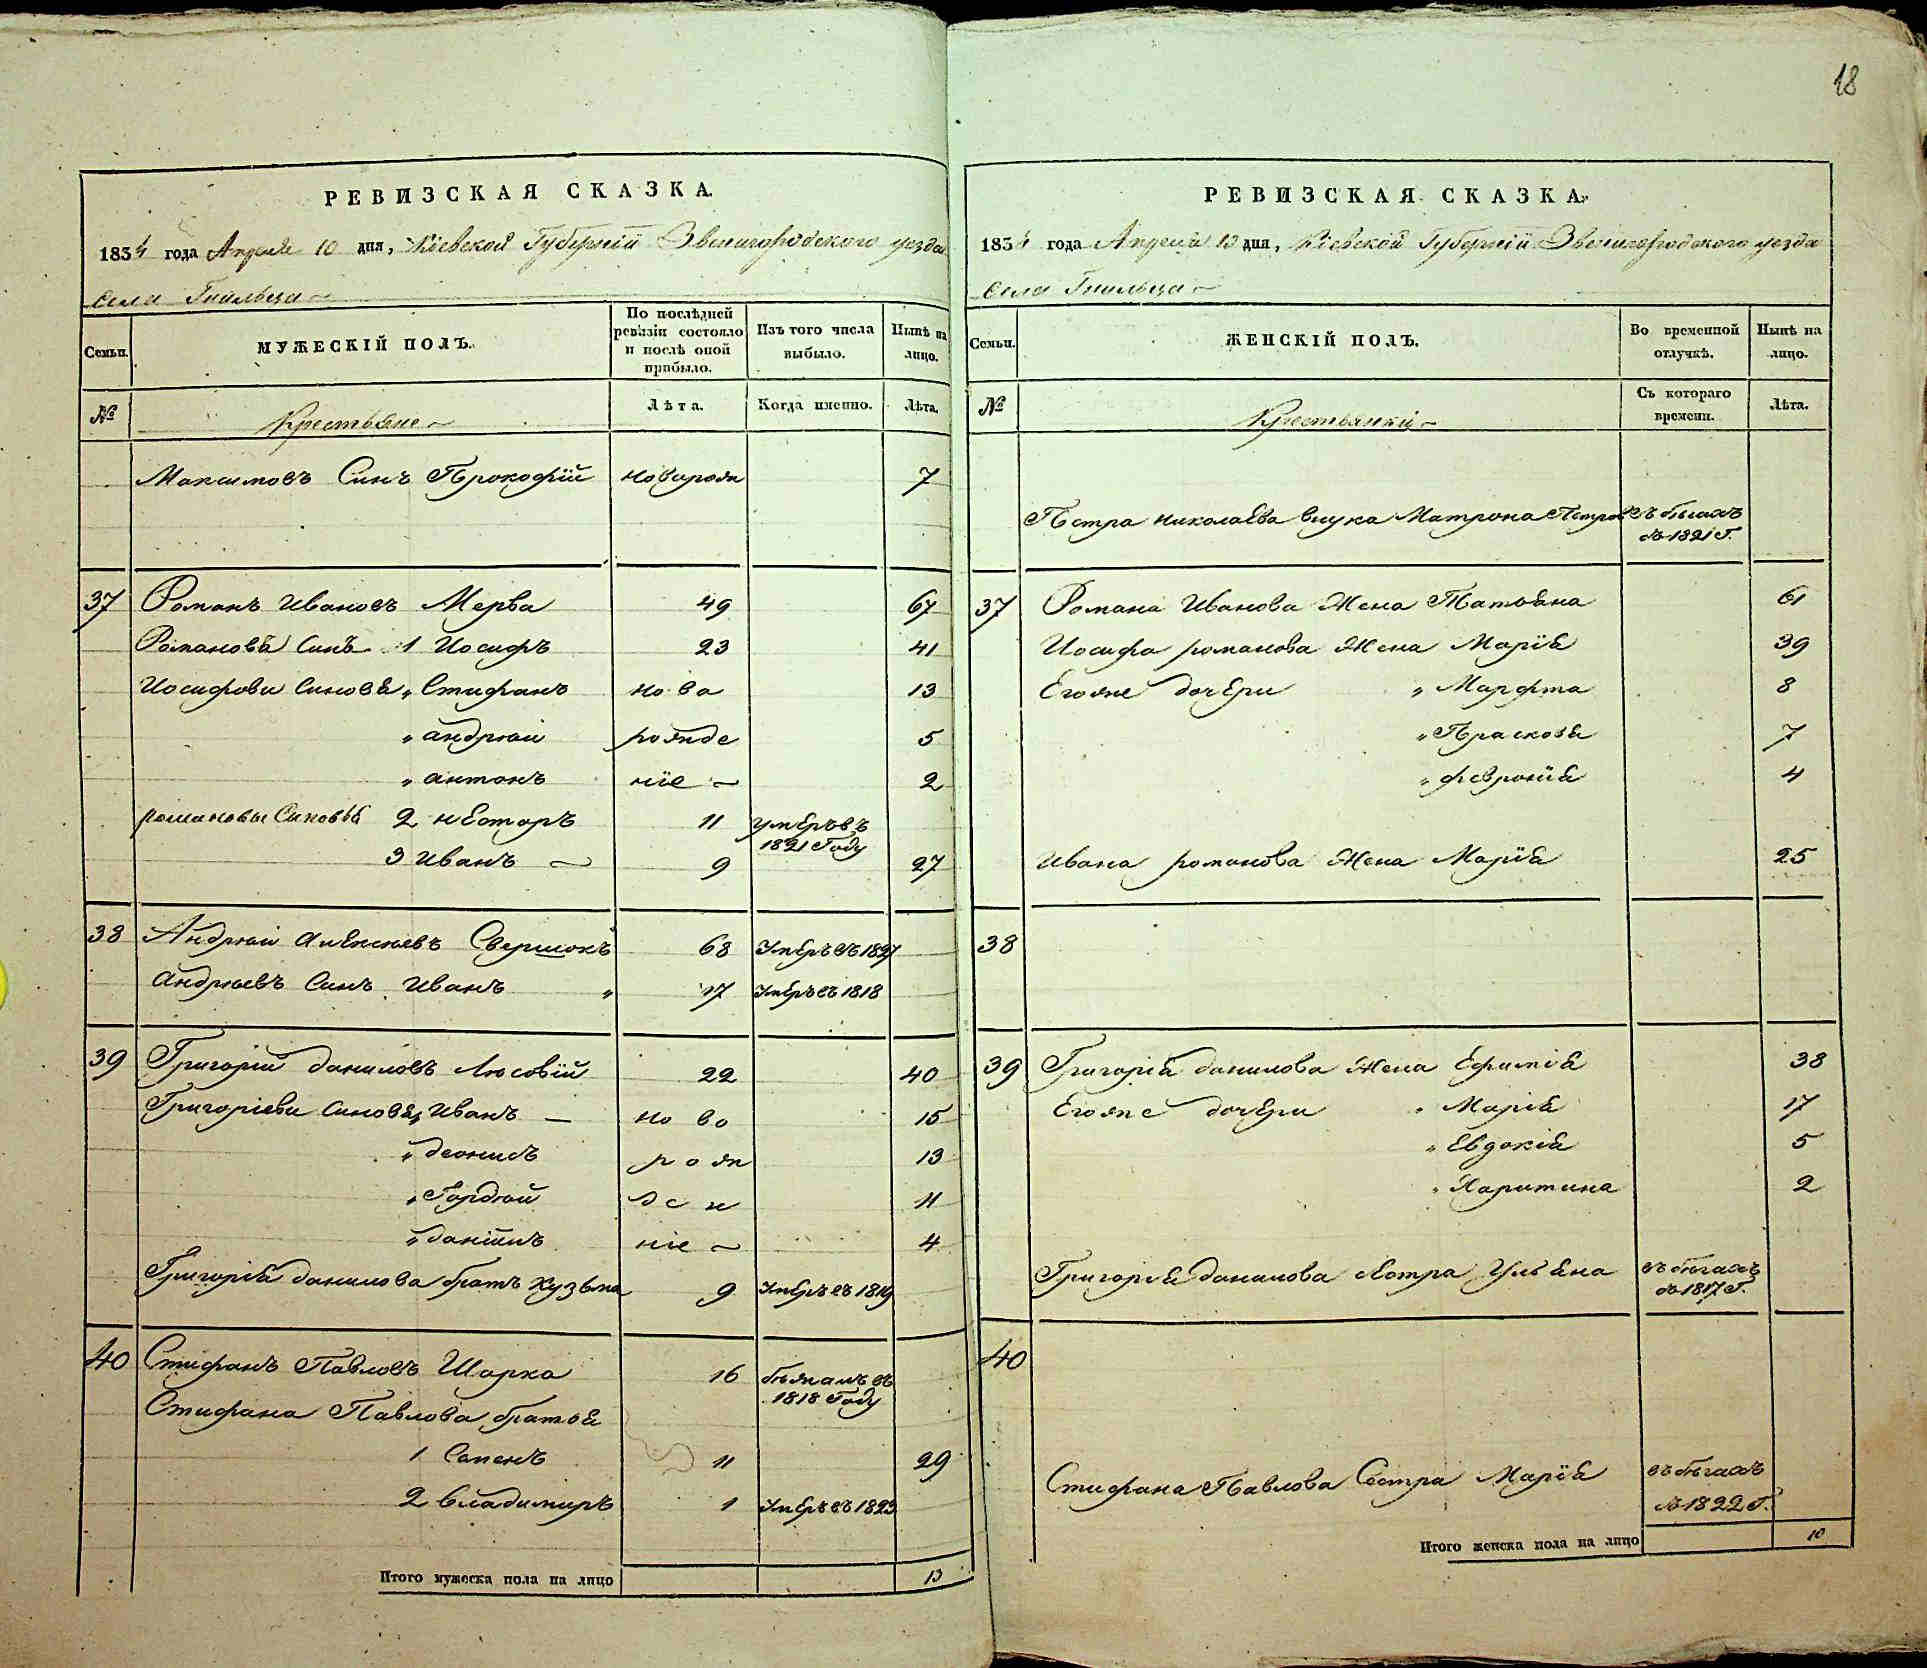 18
РЕВИЗСКАЯ СКАЗКА.
1834 года Апреля 10 дня, Кіевской Губерніи Звенигородского уезда
Села Гнильца
Семьи. МУЖЕСКІЙ ПОЛЪ. По послѣдней ревизіи состояло и послѣ оной прибыло. Изъ того числа выбыло. Нынѣ на лицо.
№ Крестьяне Лѣта. Когда именно. Лѣта.
Максимовъ Синъ Прокофій новорож 7
37 Романъ Ивановъ Мерва 49 67
Романовъ Синъ 1 Иосифъ 23 41
Иосифови Синовя „ Стифанъ ново 13
„ андрюй рожде 5
„ антонъ ніе 2
романовы Синовья 2 несторъ 11 умеръ въ 1821 Году
3 Иванъ 9 27
38 Андрюй Алексѣевъ Свершокъ 68 Умеръ въ 1827
Андрюевъ Синъ Иванъ „ 17 Умеръ въ 1818
39 Григорій даниловъ Лисовій 22 40
Григоріеви Синовя „ Иванъ ново 15
„ деонисъ рож 13
„ Гордюй ден 11
„ данiилъ ніе 4
Григорія данилова братъ Кузьма 9 Умеръ въ 1819
40 Стифанъ Павловъ Шарка 16 бѣжалъ въ 1818 Году
Стифана Павлова братья
1 Сапенъ 11 29
2 Владимиръ 1 Умеръ въ 1823
Итого мужеска пола на лицо 13
РЕВИЗСКАЯ СКАЗКА.
1834 года Апреля 10 дня, Кіевской Губерніи Звенигородского уезда
Села Гнильца
Семьи. ЖЕНСКІЙ ПОЛЪ. Во временной отлучкѣ. Нынѣ на лицо.
№ Крестьянки Съ котораго времени. Лѣта.
Петра николаева внука Матрона Петров въ бѣгахъ съ 1821 Г.
37 Романа Иванова Жена Татьяна 61
Иосифа романова Жена Марія 39
Егоже дочери „ Марфта 8
„ Прасковя 7
„ февронія 4
Ивана романова Жена Марія 25
38
39 Григорія данилова Жена Ефимія 38
Егоже дочери „ Марія 17
„ Евдокія 5
„ Харитина 2
Григорія данилова Сестра Ульяна въ бѣгахъ съ 1817 Г.
40
Стифана Павлова Сестра Марія въ бѣгахъ съ 1822 Г.
Итого женска пола на лицо 10